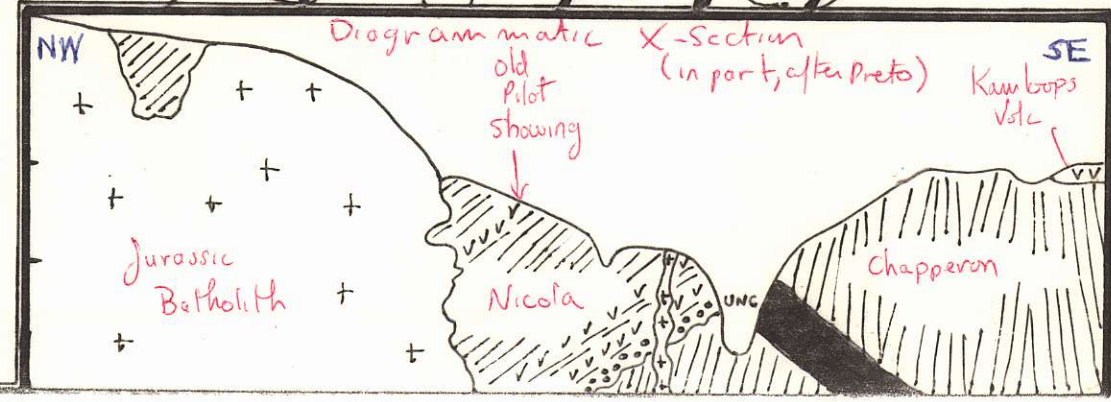 NW
Diagrammatic X-Section
(in part, after Preto)
SE
old
Pilot
showing
Kamloops
Volc
Jurassic
Batholith
Nicola
UNC
Chapperon